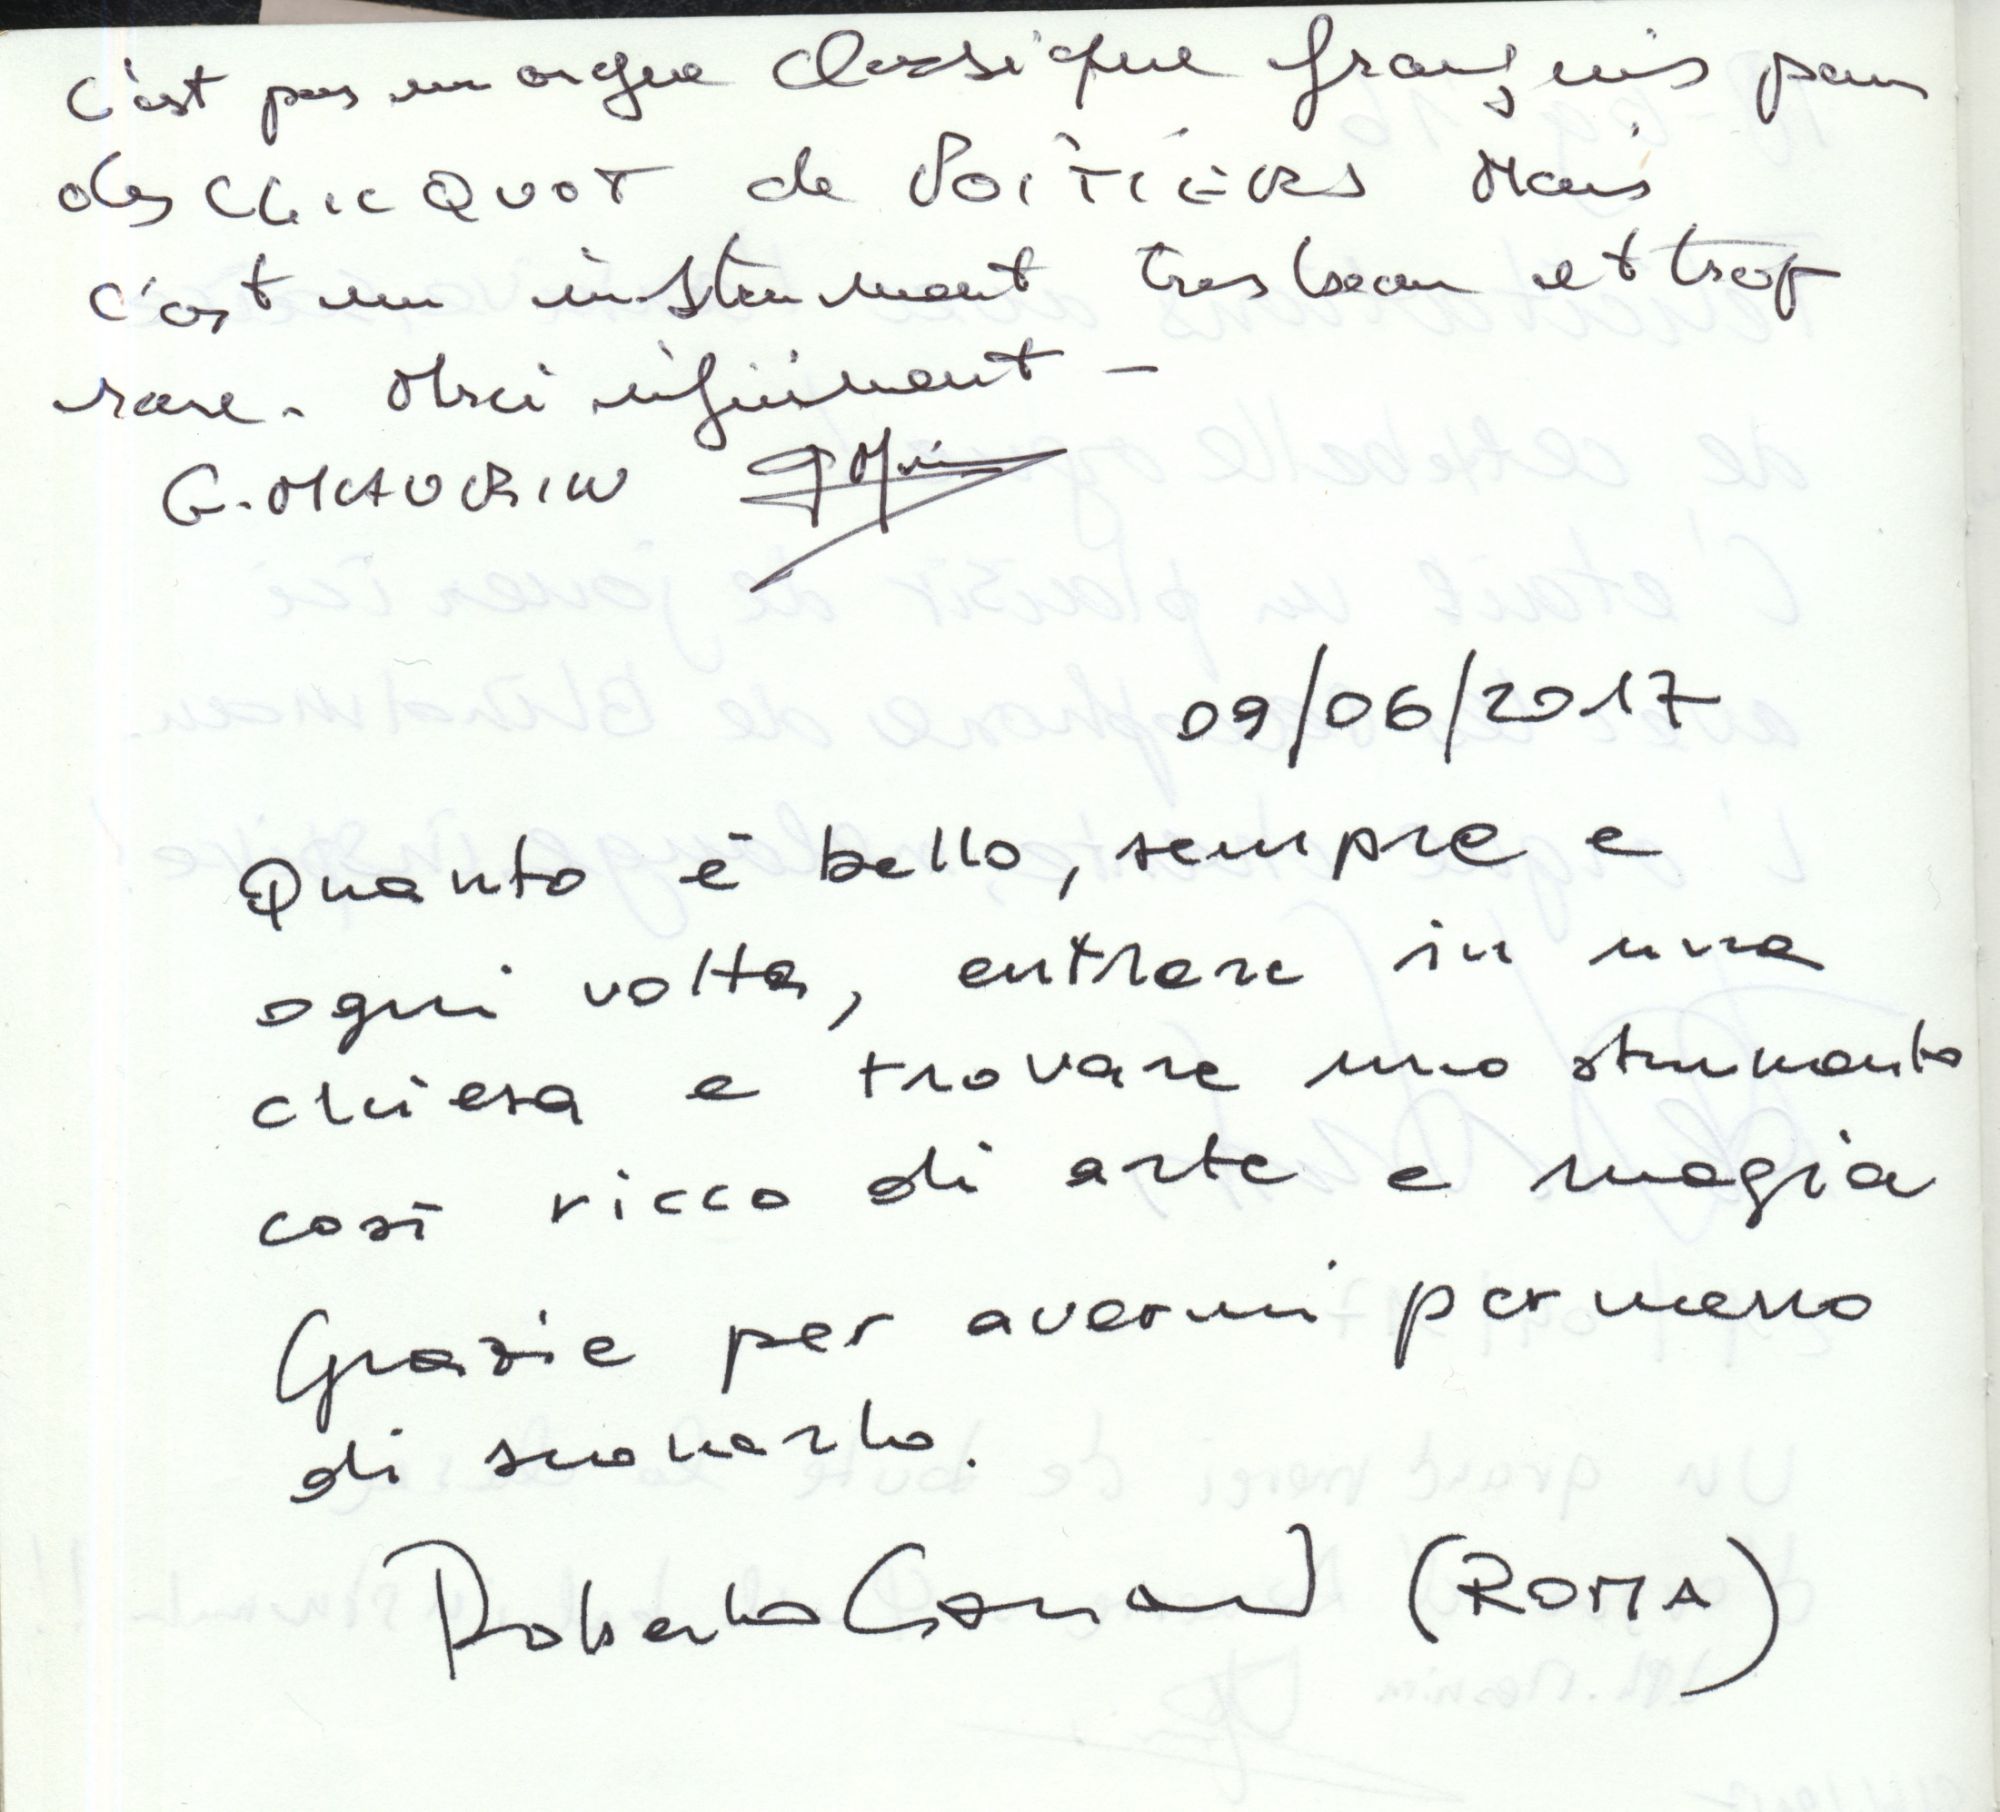 c'est pas un orgue classique français pas
des CLICQUOT de POITIERS Mais
c'est un instrument tres beau et trop
rare. Merci infiniment -
G. MAURIN
09/06/2017
Quanto è bello, sempre e
ogni volta, entrare in una
chiesa e trovare uno strumento
così ricco di arte e magia
Grazie per avermi permesso
di suonarlo.
Roberto (ROMA)